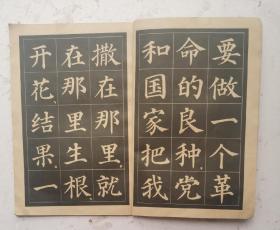 要做一个革
命的良种、党
和国家把我
撒在那里、就
在那里生根、
开花、结果、一